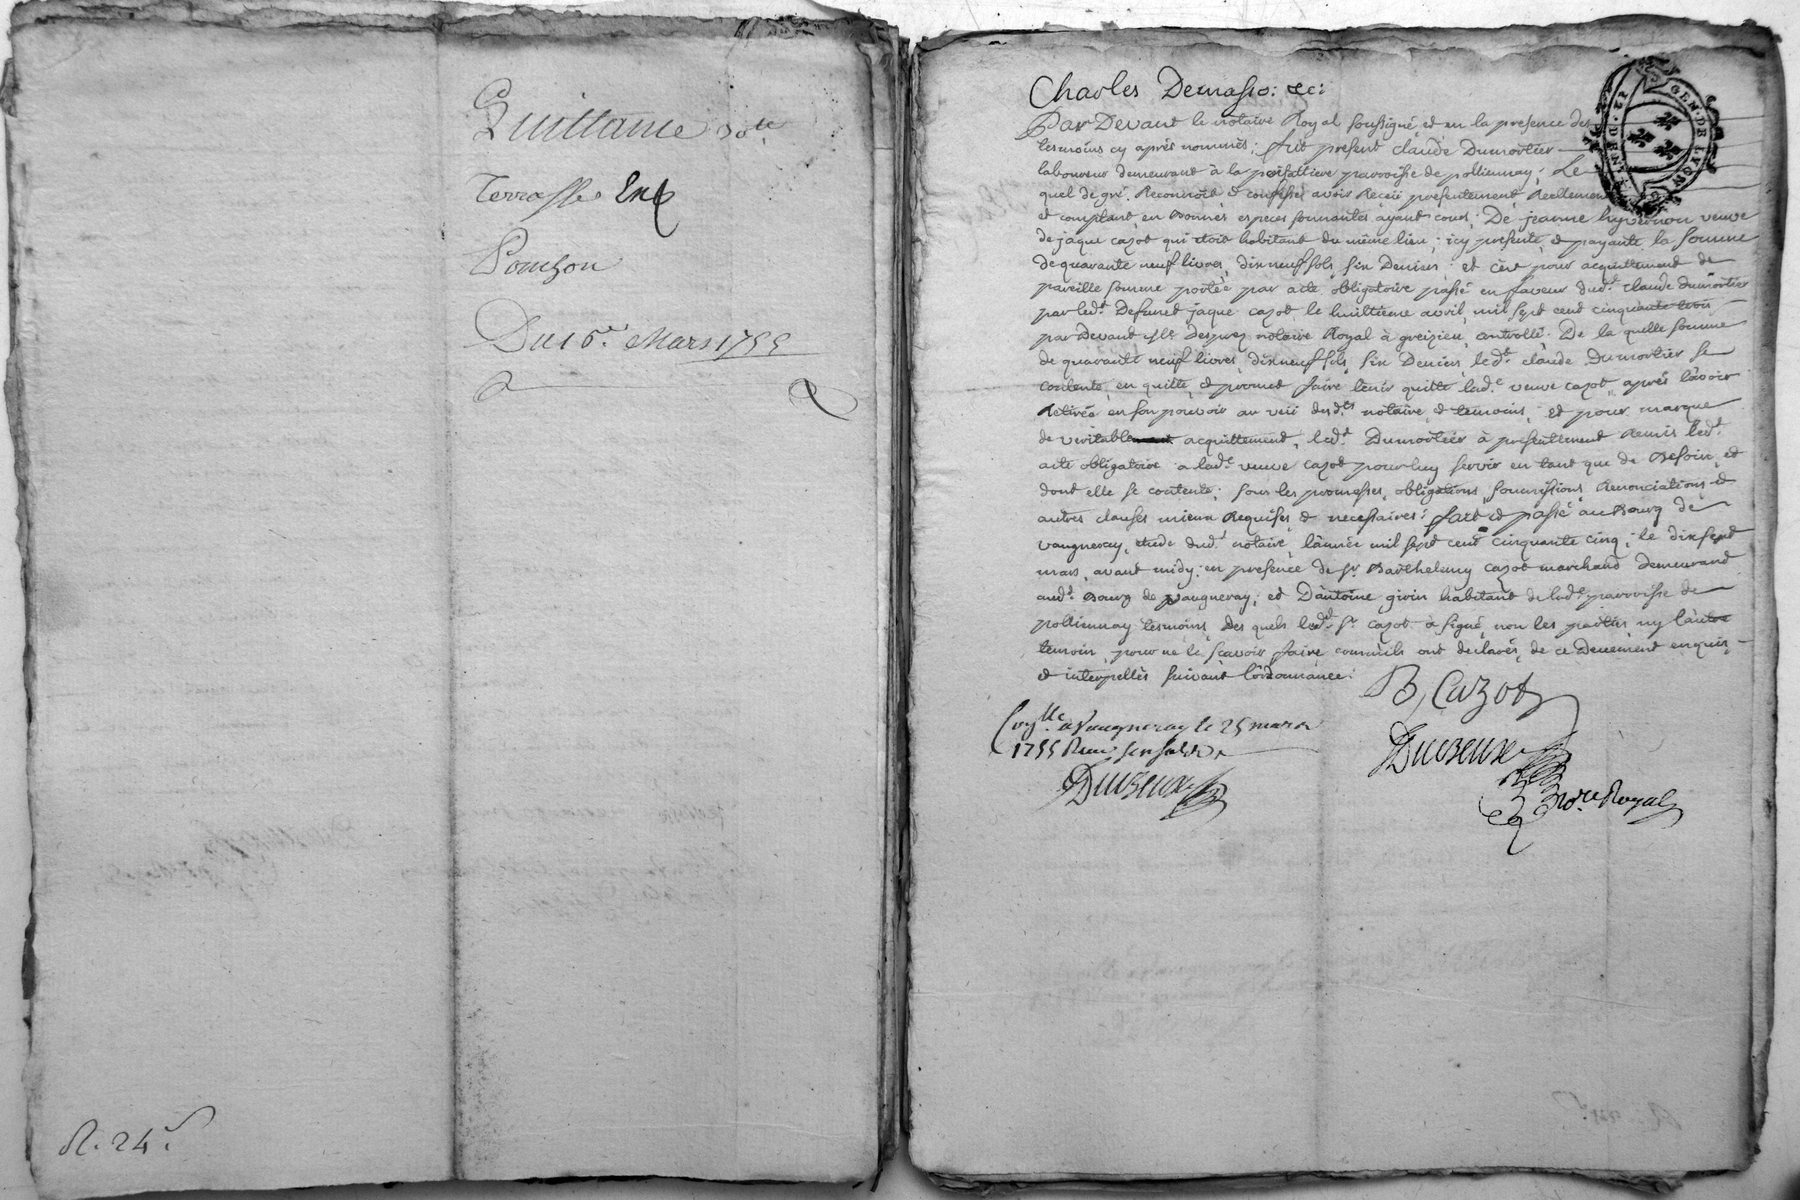 Quittance
Terrasse
Ponchon
Du 16.e Mars 1755
R. 24 s.
Charles Demasso: &c:
GEN. DE LYON
Par Devant le notaire Royal soussigné, et en la presence des
tesmoins cy aprés nommés; fut present claude Dumortier
laboureur demeurant à la parroisse de pollionnay; Le
quel de gré. Reconnoit et confesse avoir Receu presentement, Reellement
et comptant, en bonnes especes sonnantes ayant cours; De jeanne hyvernon veuve
de jaque cazot qui étoit habitant du même lieu; icy presente, et payante, la somme
de quarante neuf livres, dix neuf sols, six Deniers; et c'est pour acquittement de
pareille somme portée par acte obligatoire passé en faveur dud.t claude dumortier
par led.t Defunct jaque cazot, le huittieme avril, mil sept cent cinquante trois
par Devant notaire Royal à greizieu, controllé. De la quelle somme
de quarante neuf livres, dix neuf sols, six Deniers, led.t claude Dumortier se
contente, en quitte, et promet faire tenir quitte lad.e veuve cazot, aprés l'avoir
Retirée en son pouvoir au veü desd.ts notaire, et temoins; et pour marque
de veritable acquittement, led.t Dumortier à presentement Remis led.t
acte obligatoire a lad.e veuve cazot pour luy servir en tant que de Besoin, et
dont elle se contente; sous les promesses, obligations, soumissions, Renonciations et
autres clauses mieux Requises, et necessaires: fait et passé au Bourg de
vaugneray, etude dud.t notaire, l'année mil sept cent cinquante cinq; le dix sept
mars, avant midy; en presence de s.r Barthelemy cazot marchand demeurand
aud.t Bourg de vaugneray; et D'antoine givin habitant de lad.e parroisse de
pollionnay tesmoins, des quels led.t s.r cazot à signé, non les parties ny l'autre
temoin pour ne le scavoir faire comm'ils ont declarés, de ce Deuement enquis,
et interpellés suivant l'ordonnance:
B Cazot
à Vaugneray le 25 mars
1755 Receu
Duvzeux
Duvzeux
No.re Royal